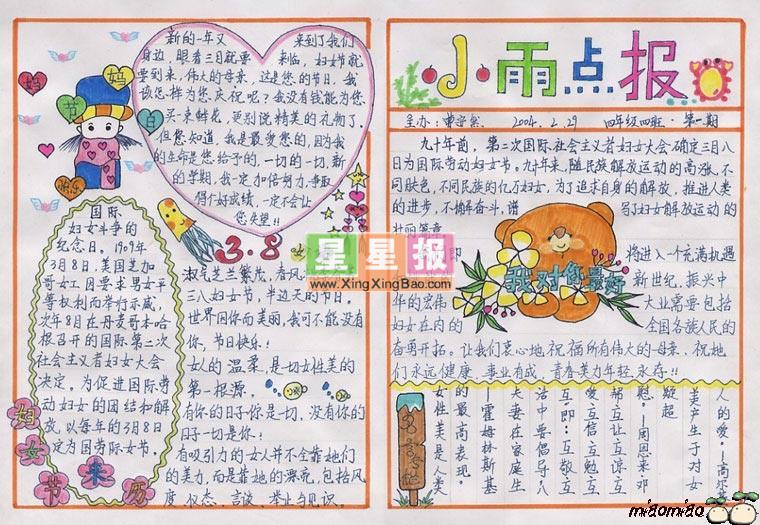 妈
妈
节
日
快乐
新的一年又 来到了我们
身边,眼看三月就要 来临,妇女节就
要到来,伟大的母亲,这是您的节日,我
该怎样为您庆祝呢?我没有钱能为您
买一束鲜花,更别说精美的礼物了,
但您知道,我是最爱您的,因为我
的生命是您给予的,一切的一切,新
的学期,我一定加倍努力,争取
得行好成绩,一定不会让
您失望!!
国际
妇女斗争的
纪念日。1909年
3月8日,美国芝加
哥女工因要求男女平
等权利而举行示威,
次年8月在丹麦哥本哈
根召开的国际第二次
社会主义者妇女大会
决定。为促进国际劳
动妇女的团结和解
放,以每年的3月8日
定为国劳际女节。
妇女节来历
3.8
淑气芝兰繁茂,春风
三八妇女节,半边美的节日,
世界因你而美丽,我可不能没有
你,节日快乐!
女人的温柔,是一切女性美的
第一根源。
有你的日子你是一切,没有你的
日子一切是你!
有吸引力的女人并不全靠她们
的美力,而是靠她的漂亮,包括风
度、仪态、言谈、举止与见识。
小雨点报
主办: 2004.2.29 四年级四班 第一期
九十年前,第二次国际社会主义者妇女大会确定三月八
日为国际劳动妇女节。九十年来,随民族解放运动的高涨,不
同肤色,不同民族的亿万妇女,为了追求自身的解放,推进人类
的进步,不懈奋斗,谱 写了妇女解放运动的
壮丽篇章
即 将进入一个充满机遇
新世纪,振兴中
华的宏伟 大业需要包括
妇女在内的 全国各族人民的
奋勇开拓。让我们衷心地祝福所有伟大的母亲,祝她
们永远健康,事业有成,青春美力年轻,永存!!
我对你最好
人的爱。—高尔基
美产生于对女
疑超
慰。—周恩来邓
帮让互谅互
爱互信互勉互
互即:互敬互
活中要倡导八
夫妻在家庭生
—霍姆林斯基
的最高表现。
女性美是人类
名言
星星报
www.XingXingBao.com
miaomiao